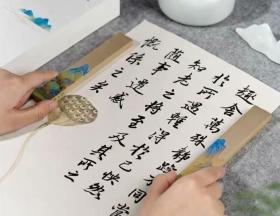 趣舍萬殊靜
於所遇暫得於己快然
知老之將至及其所之
隨事遷感
慨係之矣